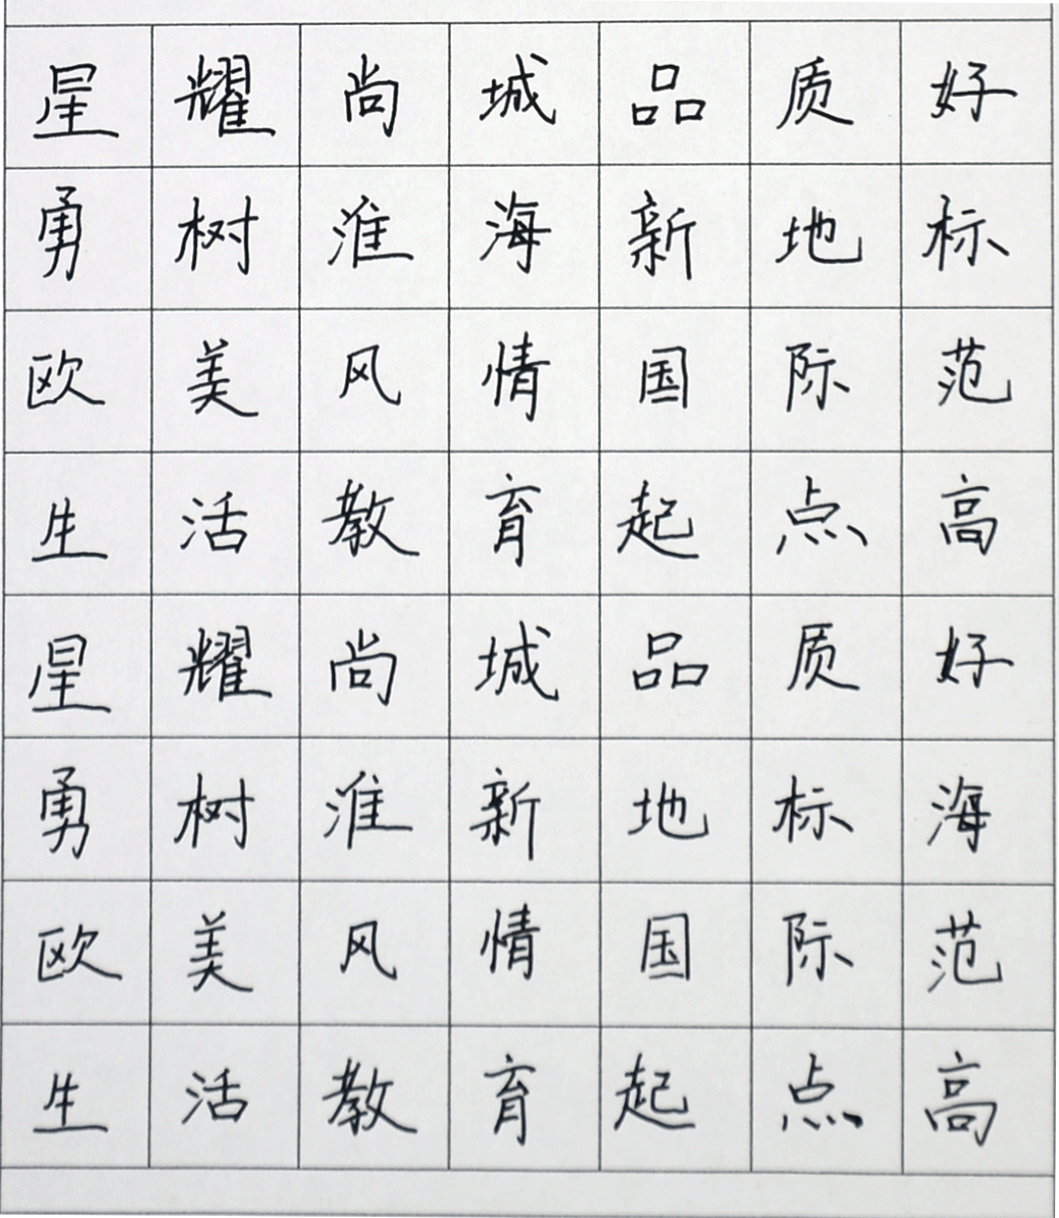 星耀尚城品质好
勇树淮海新地标
欧美风情国际范
生活教育起点高
星耀尚城品质好
勇树淮新地标海
欧美风情国际范
生活教育起点高